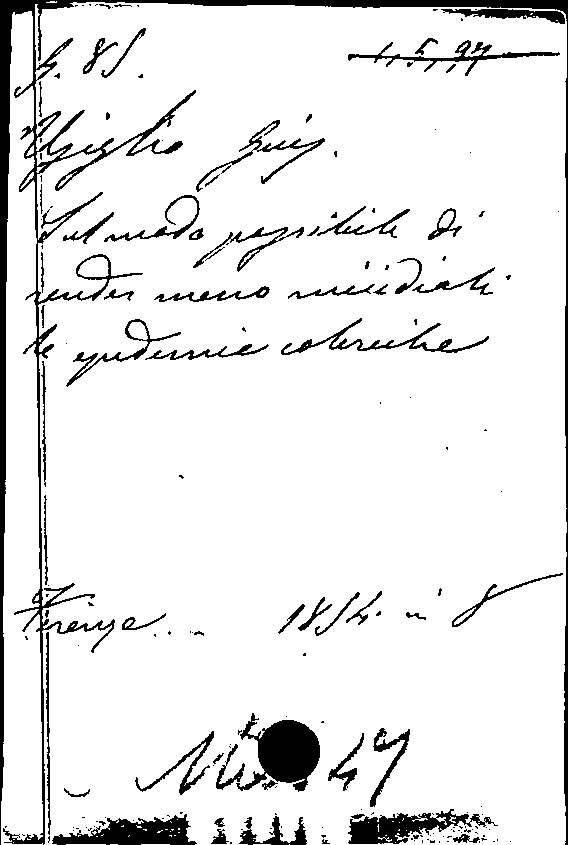 G. 85.
1, 5, 97
Usiglio Gius.
Sul modo possibile di
render meno micidiali
le epidemie coleriche
Firenze - 1854. in 8
47